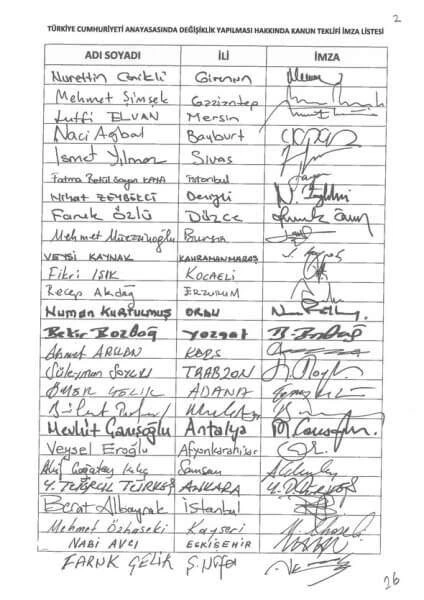 2
TÜRKİYE CUMHURİYETİ ANAYASASINDA DEĞİŞİKLİK YAPILMASI HAKKINDA KANUN TEKLİFİ İMZA LİSTESİ
ADI SOYADI İLİ İMZA
Nurettin Canikli Giresun
Mehmet Şimşek Gaziantep
Lutfi ELVAN Mersin
Naci Ağbal Bayburt
İsmet Yılmaz Sivas
Fatma Betül Sayan KAYA İstanbul
Nihat ZEYBEKCİ Denizli
Faruk ÖZLÜ DÜZCE
Mehmet Müezzinoğlu Bursa
VEYSİ KAYNAK KAHRAMANMARAŞ
Fikri IŞIK KOCAELİ
Recep Akdağ ERZURUM
Numan KURTULMUŞ ORDU
Bekir Bozdağ Yozgat
Ahmet ARSLAN KARS
Süleyman SOYLU TRABZON
ÖMER ÇELİK ADANA
Mevlüt Çavuşoğlu Antalya
Veysel Eroğlu Afyonkarahisar
Akif Çağatay Kılıç Samsun
Y. TUĞRUL TÜRKEŞ ANKARA
Berat Albayrak İstanbul
Mehmet Özhaseki Kayseri
NABİ AVCI ESKİŞEHİR
FARUK ÇELİK Ş.Urfa
26